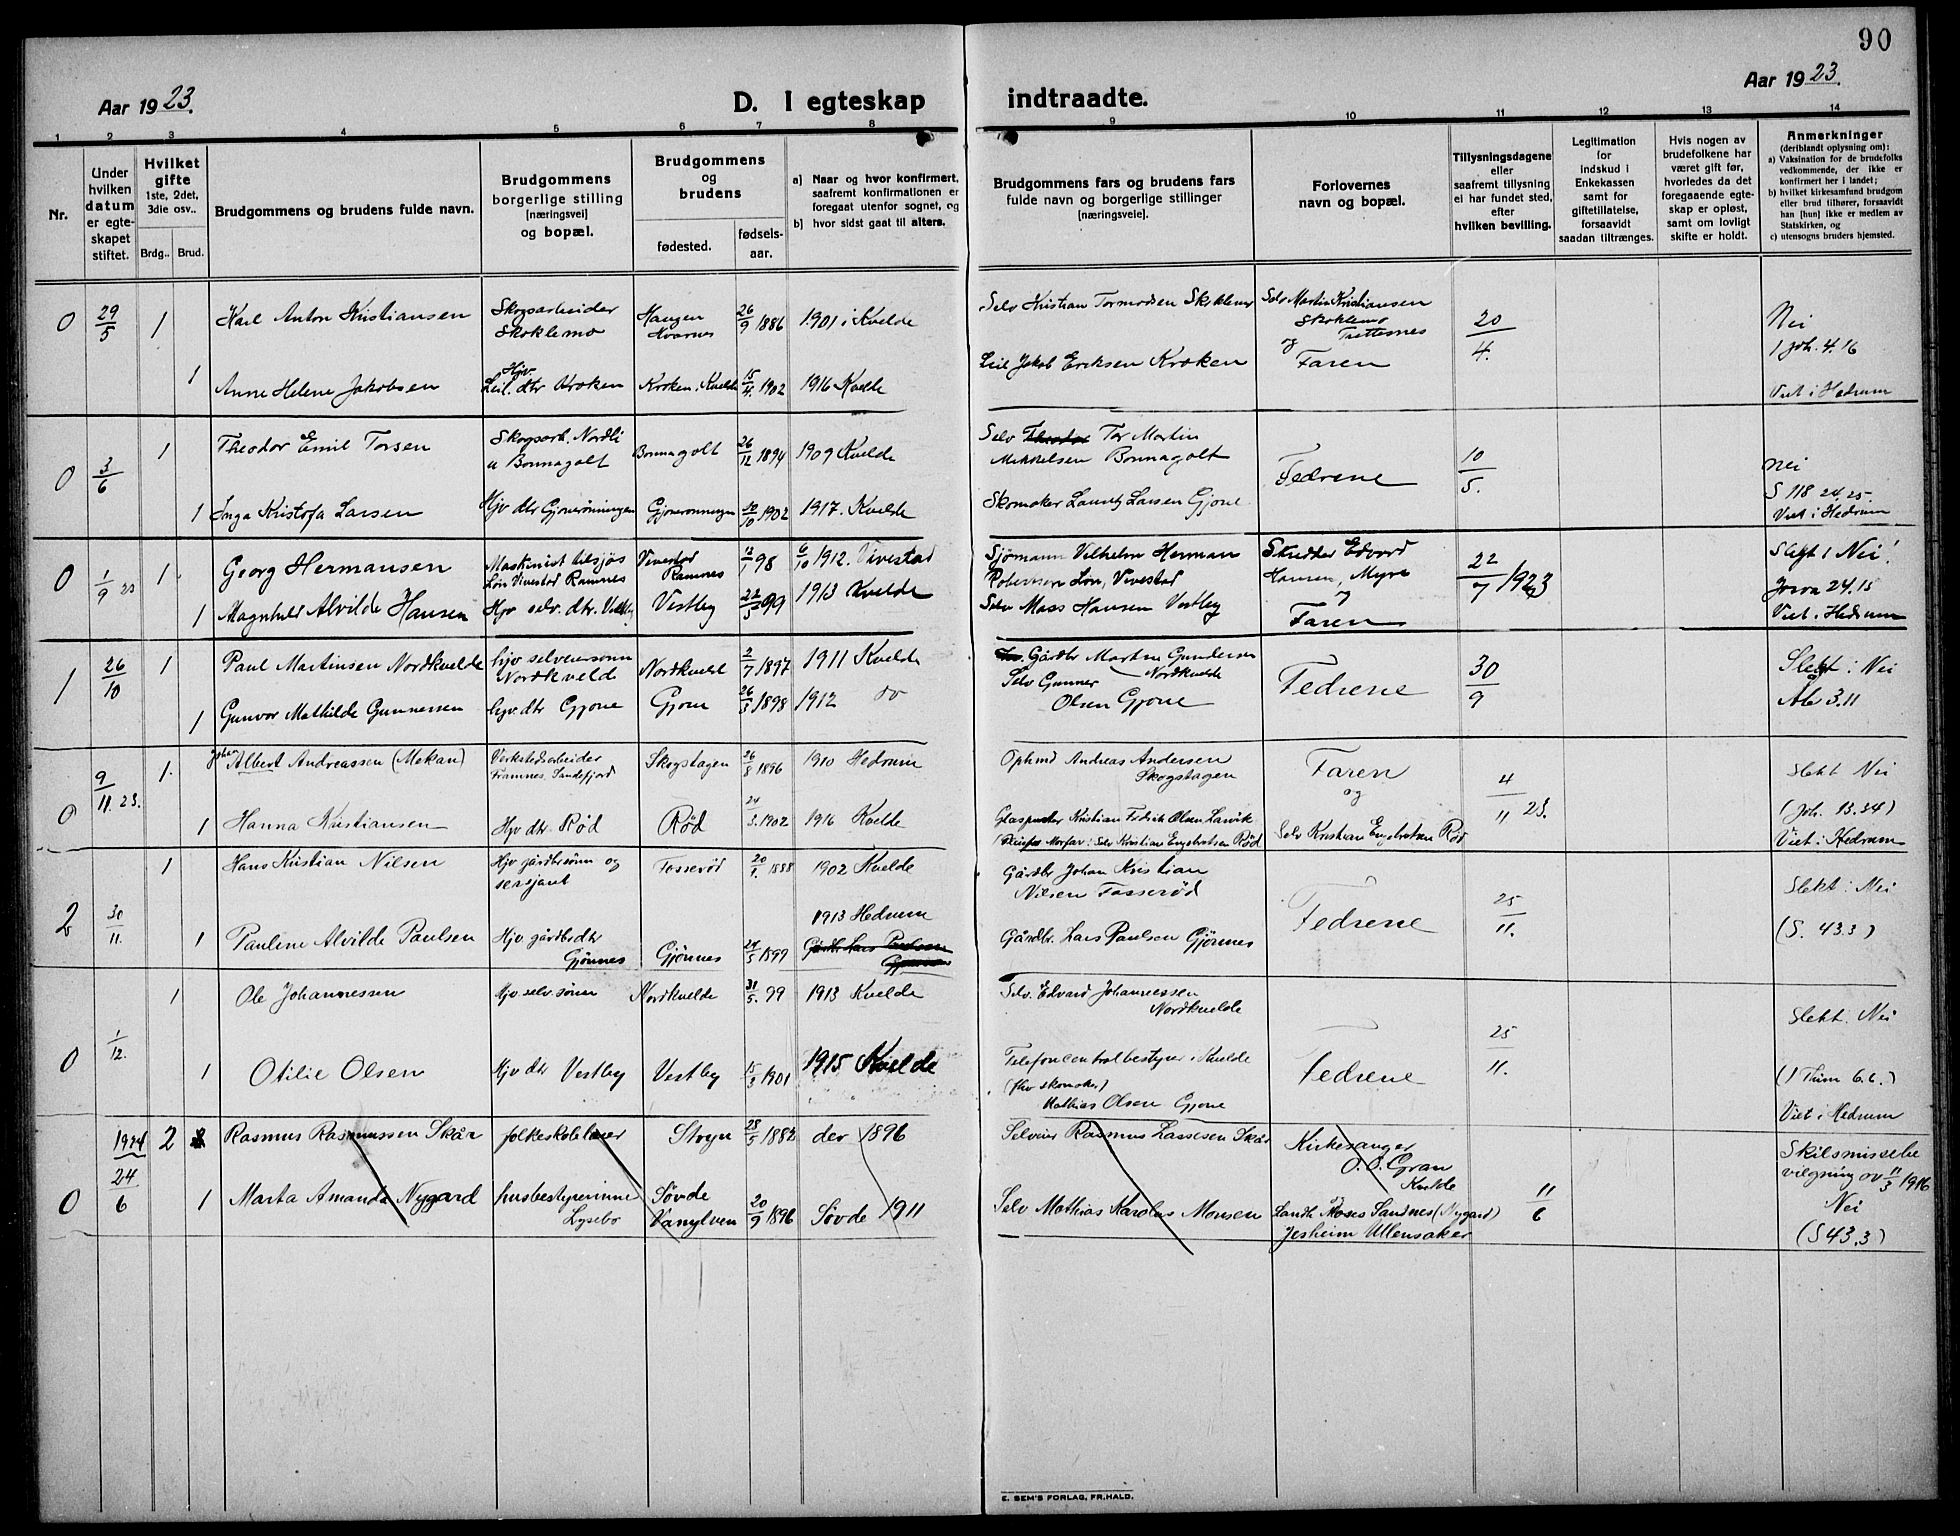 90
Aar 1923.
D. I egteskap indtraadte.
Aar 1923.
1 2 3 4 5 6 7 8 9 10 11 12 13 14
Nr.
Under hvilken datum er egte-skapet stiftet.
Hvilket gifte 1ste, 2det, 3die osv..
Brdg.. Brud.
Brudgommens og brudens fulde navn.
Brudgommens borgerlige stilling [næringsvei] og bopæl.
Brudgommens og brudens
fødested.
fødsels-aar.
a) Naar og hvor konfirmert, saafremt konfirmationen er foregaat utenfor sognet, og
b) hvor sidst gaat til alters.
Brudgommens fars og brudens fars fulde navn og borgerlige stillinger [næringsveie].
Forlovernes navn og bopæl.
Tillysningsdagene eller saafremt tillysning ei har fundet sted, efter hvilken bevilling.
Legitimation for indskud i Enkekassen samt for giftetillatelse, forsaavidt saadan tiltrænges.
Hvis nogen av brudefolkene har været gift før, hvorledes da det foregaaende egte-skap er opløst, samt om lovligt skifte er holdt.
Anmerkninger (deriblandt oplysning om):
a) Vaksination for de brudefolks vedkommende, der ikke er konfirmert her i landet;
b) hvilket kirkesamfund brudgom eller brud tilhører, forsaavidt han [hun] ikke er medlem av Statskirken, og
c) utensogns bruders hjemsted.
0 29/5 1 Karl Anton Kristiansen Skogsarbeider Skoklemo Haugen Kvarnes 26/9 1886 1901 i Kvelde Selv Kristian Tormodsen Skoklemo Selv Martin Kristiansen Skoklemo Trettesnes 20/4. Nei
1 Joh. 4.16
1 Anne Helene Jakobsen Hjv. Leil. dtr Kroken Kroken i Kvelde 15/4. 1902 1916 Kvelde Leil Jakob Eriksen Kroken og Faren Viet i Hedrum
0 3/6 1 Theodor Emil Torsen Skogsarb. Nordli u Bonnagolt Bonnagolt 26/12 1894 1909 Kvelde Selv Theodor Tor Martin Mikkelsen Bonnagolt Fedrene 10/5. Nei
S 118 24.25.
1 Inga Kristofa Larsen Hjv dtr Gjonerönningen Gjonerönningen 20/10 1902 1917. Kvelde Skomaker Lauritz Larsen Gjone Viet i Hedrum
0 1/9 23 1 Georg Hermansen Maskinist tilsjøs Lön Vivestad Ramnes Vivestad Ramnes 12/1 98 6/10 1912. Vivestad Sjömann Vilhelm Herman Robertsen Lön, Vivestad Edvard Hansen, Myre 22/7 1923 Slegt i Nei!
Josva 24.15
1 Magnhild Alvilde Hansen Hjv selv. dtr. Vestby Vestby 22/5 99 1913 Kvelde Selv Mass Hansen Vestby og Faren Viet i Hedrum
1 26/10 1 Paul Martinsen Nordkvelde hjv selveiersønn Nordkveld Nordkveld 2/7 1897 1911 Kvelde Gårdbr Martin Gundersen Nordkvelde Fedrene 30/9 Slekt: Nei
Åb 3.11
1 Gunvor Mathilde Gunnersen hjv. dtr Gjone Gjone 26/3 1898 1912 do Selv Gunner Olsen Gjone
0 9/11. 23. 1. Johan Albert Andreassen (Mekan) Verkstedsarbeider Framnes, Sandefjord Skogstagen 26/8 1896 1910 Hedrum Ophmd Andreas Andersen Skogstagen Faren og 4/11 23. Slekt Nei
(Joh. 13.34)
1 Hanna Kristiansen Hjv dtr Rød Rød 24/3. 1902 1916 Kvelde Glaspuster Kristian Fredrik Olsen Larvik
Morfar: Selv Kristian Engebretsen Rød Selv Kristian Engebretsen Rød Viet i Hedrum
2 30/11. 1 Hans Kristian Nilsen Hjv gårdbrsønn og sersjant Fosserød 20/1. 1888 1902 Kvelde Gårdbr Johan Kristian Nilsen Fosserød Fedrene 25/11. Slekt: Nei
(S. 43.3)
1 Pauline Alvilde Paulsen Hjv gårdbdtr Gjønnes Gjønnes 24/5 1899 1913 Hedrum Gårdbr Lars Paulsen Gjønnes Gårdbr. Lars Paulsen Gjønnes
0 1/12. 1 Ole Johannessen Hjv. selv. sønn Nordkvelde 31/5. 99 1913 Kvelde Selv. Edvard Johannessen Nordkvelde Fedrene 25/11. Slekt: Nei
(1 Thim 6.6.)
1 Otilie Olsen Hjv dtr Vestby Vestby 15/3 1901 1915 Kvelde Telefoncentralbestyrer i Kvelde (fhv skomak.) Mathias Olsen Gjone Viet i Hedrum
0 1924 24/6 2 Rasmus Rasmussen Skår folkeskolelærer Stryn 28/5 1882 der 1896 Selveier Rasmus Lassesen Skår Kirkesanger O. O. Gran Kvelde 11/6 Skilsmissebevilgning av 11/3 1916
Nei
(S 43.3)
1 Marta Amanda Nygard husbestyrerinne Lysebo Søvde Vanylven 20/9 1896 Søvde 1911 Selv Mathias Karolus Monsen og Landh Moses Sandnes (Nygard) Jesheim Ullensaker
E. SEM'S FORLAG, FR.HALD.